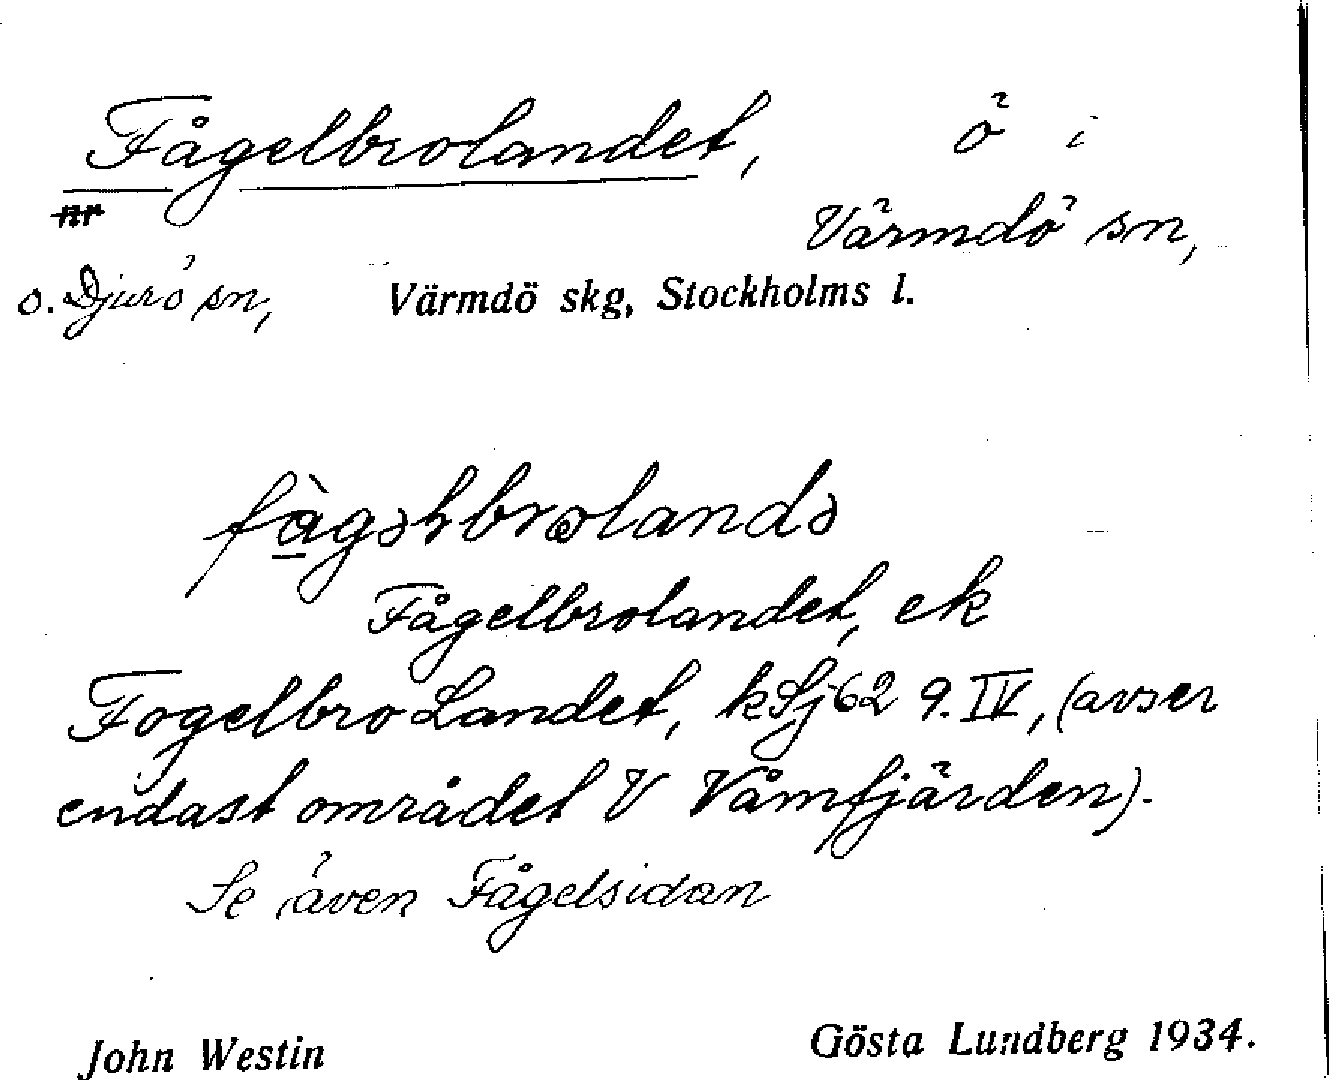 Fågelbrolandet, ö i
nr
Värmdö sn,
o. Djurö sn, Värmdö skg, Stockholms l.
Fågelbrolandet, ek
Fogelbro Landet, kSj62 9.IV, (avser
endast området V Våmfjärden).
Se även Fågelsidan
John Westin Gösta Lundberg 1934.